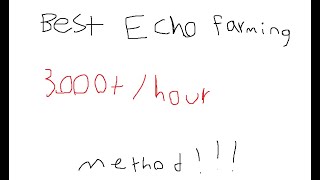 Best Echo farming
3000+/hour
method!!!